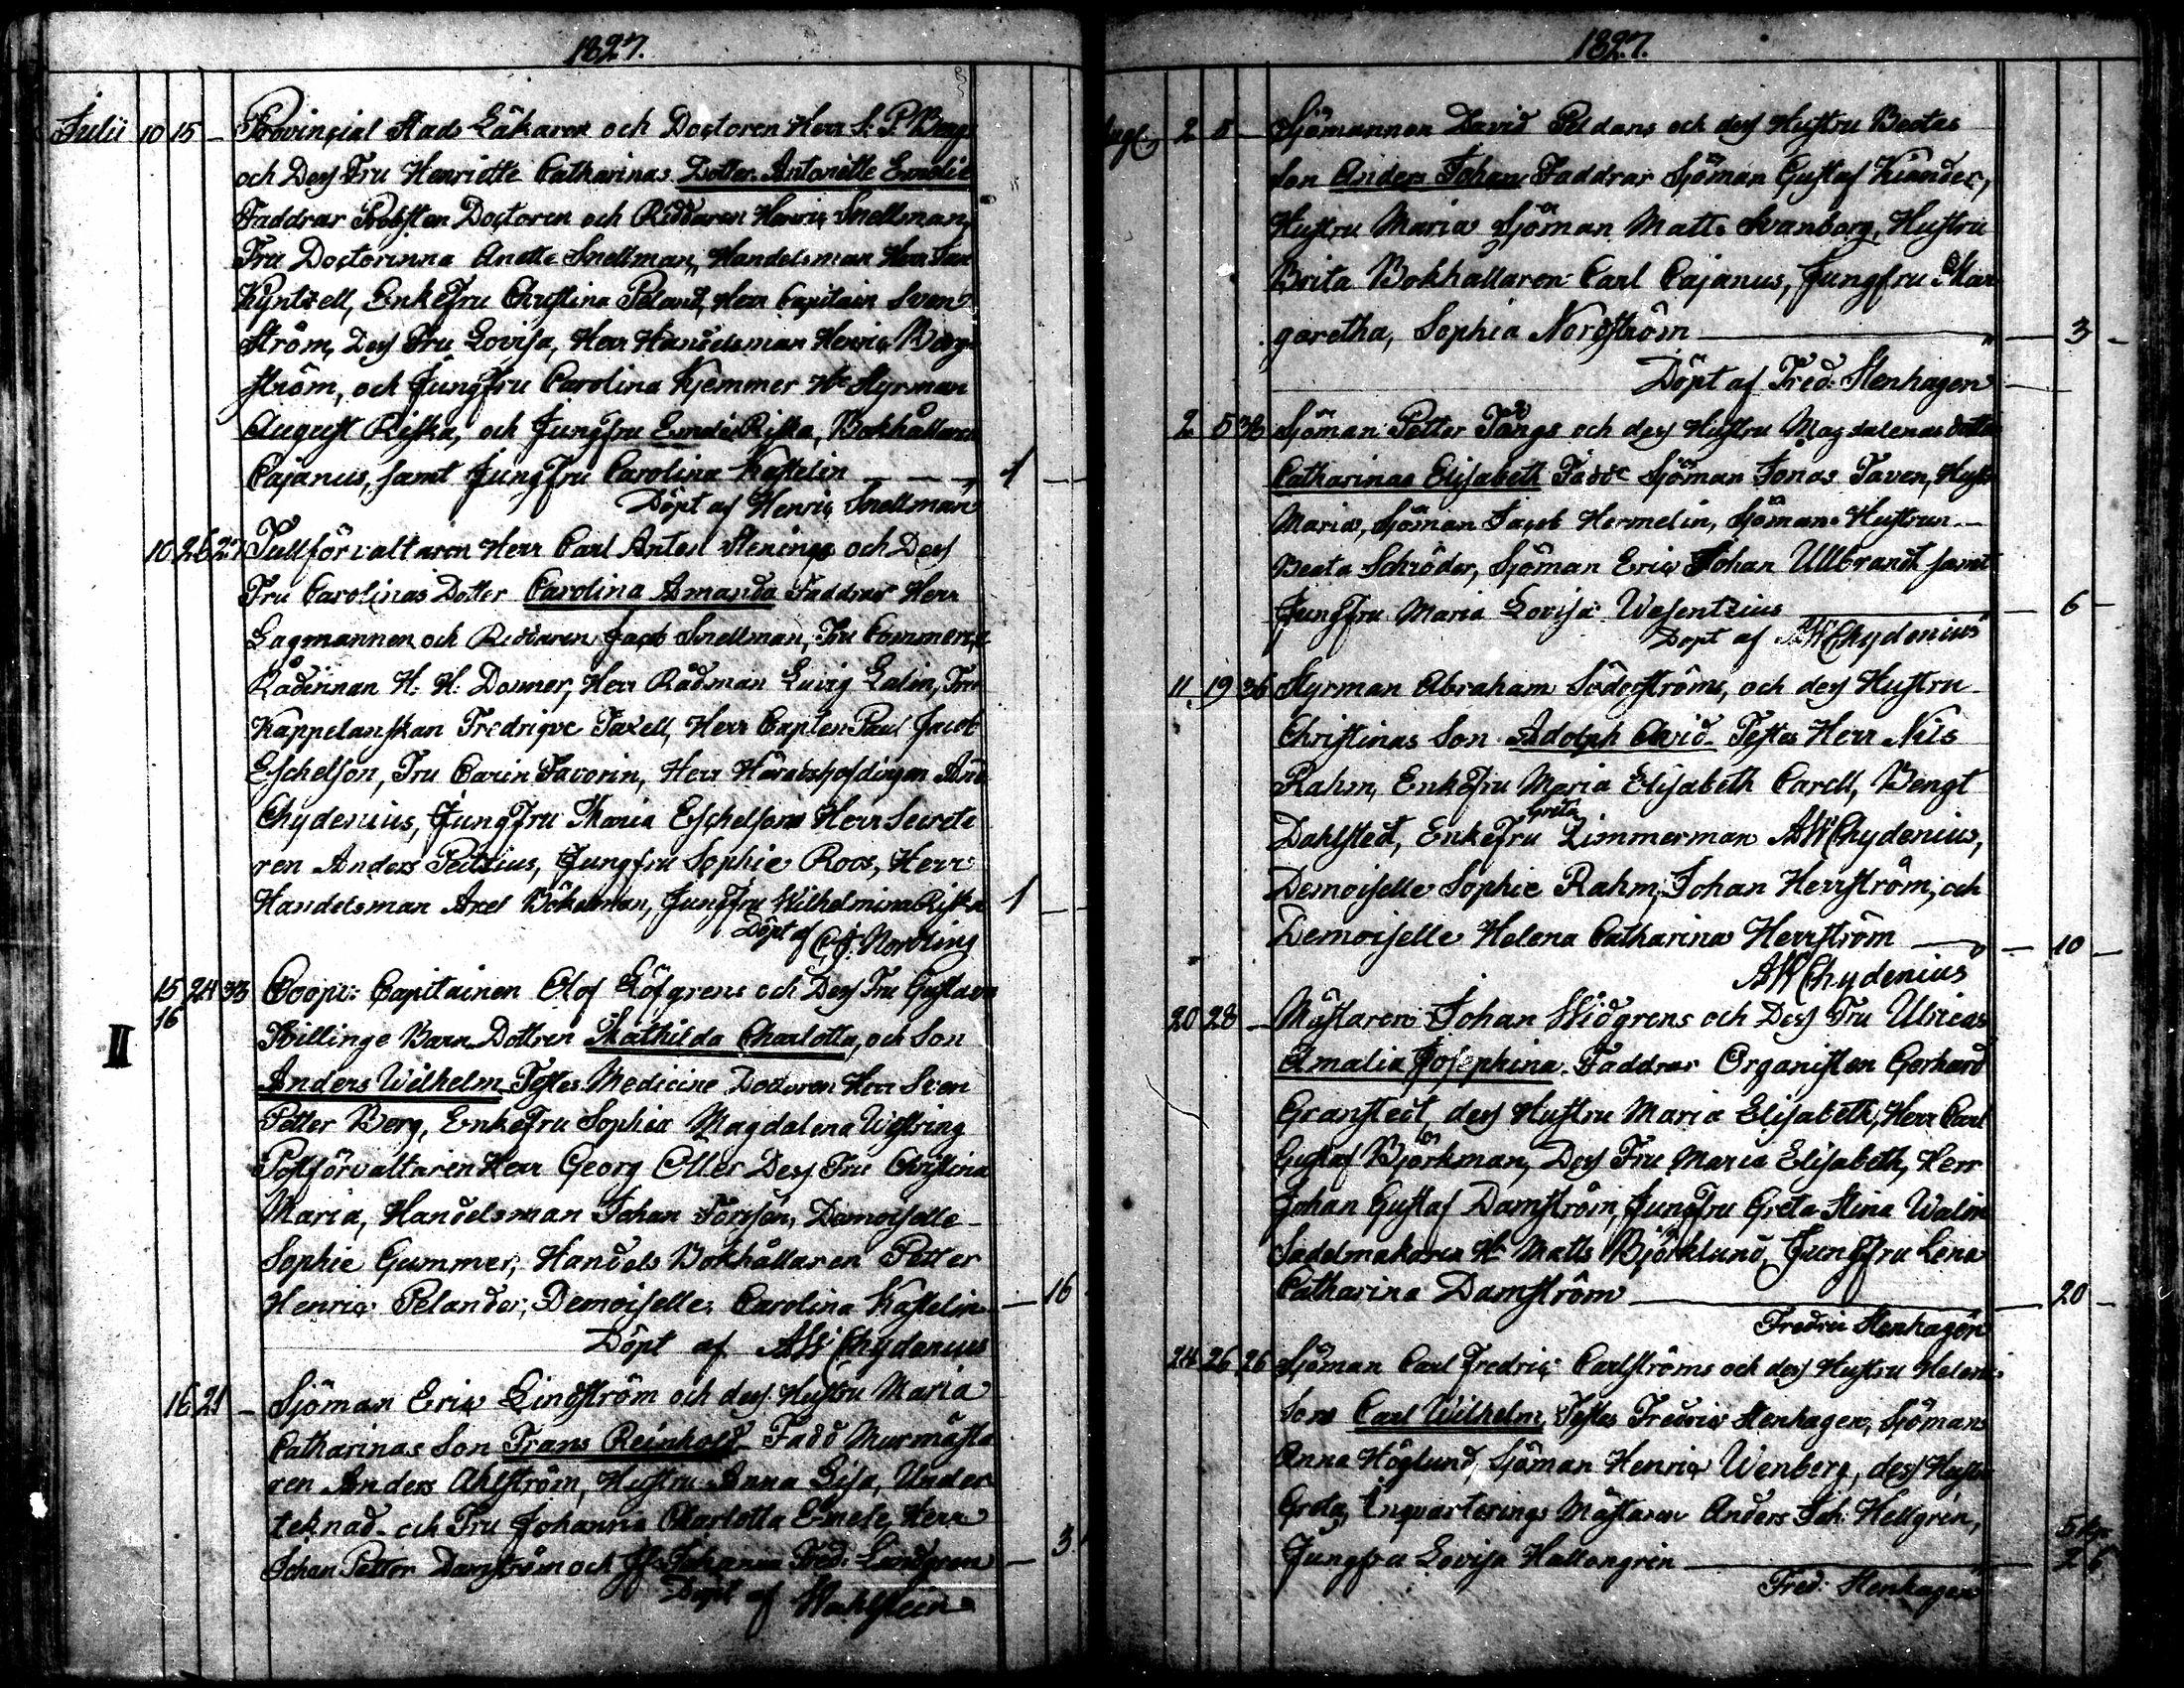 1827.
Julii 10 15 - Provincial Stads Läkaren och Doctoren Herr S. P. Berg
och Dess Fru Henriette Catharinas Dotter Antoniette Emelie
Faddrar Probsten Doctoren och Riddaren Henric Snellman,
Fru Doctorinna Anette Snellman, Handelsman Herr
Kyntzell, Enkefru Christina Peland, Herr Capitain Sven
Ström, Dess Fru Lovisa, Herr Handelsman Henric Berg-
ström, och Jungfru Carolina Kjemmer Hr Styrman
August Riska, och Jungfru Emelie Riska, Bokhållaren
Cajanus, samt Jungfru Carolina Kastelin — 1 —
Döpt af Henric Snellman
10 26 27 Tullförvaltaren Herr Carl Anton Stenings och Dess
Fru Carolinas Dotter Carolina Amanda Faddrar Herr
Lagmannen och Riddaren Jacob Snellman, Fru Commerce
Rådinnan H. H. Donner, Herr Rådman Luvig Lalin, Fru
Kappelanskan Fredrique Taxell, Herr Capten Paul Jacob
Eschelson, Fru Carin Favorin, Herr Häradshöfdingen And
Chydenius, Jungfru Maria Eschelson Herr Secrete
ren Anders Peitzius, Jungfru Sophie Roos, Herr
Handelsman Axel Bökelman, Jungfru Wilhelmina Riska 1 —
Döpt af C. J. Nordling
15 24 33 Coopv: Capitainen Olof Löfgrens och Dess Fru Gustava
16
II
Killinge Barn Dottren Mathilda Charlotta, och Son
Anders Wilhelm Testes Medicine Doctoren Herr Sven
Petter Berg, Enkefru Sophia Magdalena Westring
Postförvaltaren Herr Georg Oller Dess Fru Christina
Maria, Handelsman Johan Forssén, Demoiselle
Sophie Gummer, Handels Bokhållaren Petter
Henric Pelander, Demoiselle Carolina Kastelin — 16
Döpt af AW Chydenius
16 21 - Sjöman Eric Lindström och dess Hustru Maria
Catharinas Son Frans Reinhold Fadd Murmästa
ren Anders Ahlström, Hustru Anna Lisa, Under
teknad och Fru Johanna Charlotta Emele, Herr
Johan Petter Damström och Jfr Johanna Fred: Lundgren — 3
Döpt af Wahlstein
1827.
Aug 2 5 - Sjömannen David Peldans och dess Hustru Beatas
Son Anders Johan Faddrar Sjöman Gustaf Kiander,
Hustru Maria Sjöman Matts Svanborg, Hustru
Brita Bokhållaren Carl Cajanus, Jungfru Mar
garetha, Sophia Nordström — 3 —
Döpt af Fred: Stenhagen
2 5 38 Sjöman Petter Tångs och dess Hustru Magdalenas dotter
Catharina Elisabeth Fadd: Sjöman Jonas Taven, Hust
Maria, Sjöman Jacob Hermelin, Sjömans Hustrun
Beata Schröder, Sjöman Eric Johan Ullbrandt samt
Jungfru Maria Lovisa Wesentzius — 6 —
Döpt af AW Chydenius
11 19 36 Styrman Abraham Söderströms, och dess Hustru
Christinas Son Adolph Arvid Testes Herr Nils
Rahm, Enkefru Maria Elisabeth Carell, Bengt
Greta
Dahlstedt, Enkefru Zimmerman AW Chydenius,
Demoiselle Sophie Rahm, Johan Herrström, och
Demoiselle Helena Catharina Herrström — 10 —
AW Chydenius
20 28 - Mästaren Johan Widgrens och Dess Fru Ulricas
Amalia Josephina Faddrar Organisten Gerhard
Granstedt, dess Hustru Maria Elisabeth, Herr Carl
Gustaf Björkman, Dess Fru Maria Elisabeth, Herr
Johan Gustaf Damström, Jungfru Greta Stina Walin
Sadelmakaren Hr Matts Björklund, Jungfru Lena
Catharina Damström — 20 —
Fredric Stenhagen
24 26 26 Sjöman Carl Fredric Carlströms och dess Hustru Helena
Son Carl Wilhelm, Testes Fredric Stenhagen, Sjömans
Anna Höglund, Sjöman Henric Wenberg, dess Hustru
Greta, Inqvarterings Mästaren Anders Joh: Hellgren,
Jungfru Lovisa Hallongren — 26
Fred: Stenhagen